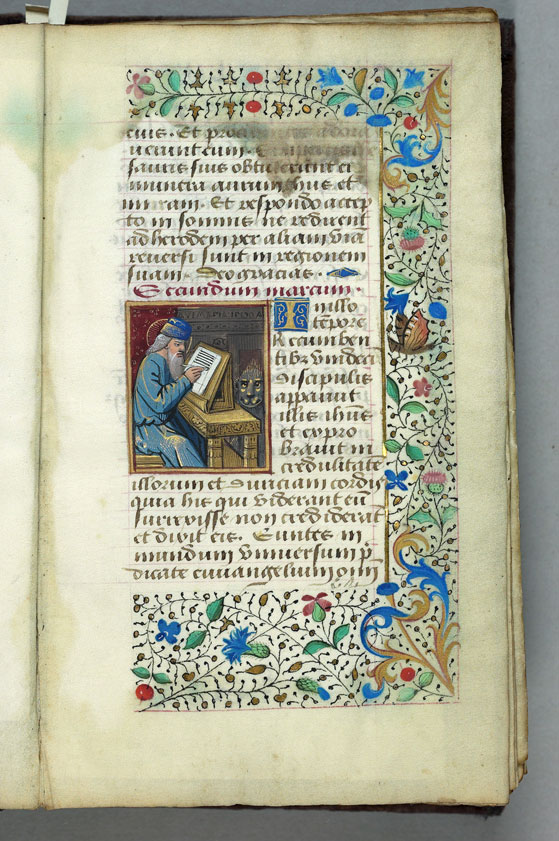 eius. Et
uerunt eum.
sauris suis obtulerunt ei
munera aurum thus et
mirram. Et responso accep
to in somnis ne redirent
ad herodem per aliam viā
reuersi sunt in regionem
suam. Deo gracias.
Secundum marcum.
In illo
tēpore
Recumben
tibꝰ vndeci
discipulis
apparuit
illis ihūs
et expro
brauit in
credulitatē
illorum et duriciam cordis
quia his qui viderant eū
surrexisse non crediderāt
et dixit eis. Euntes in
mundum vniuersum p̄
dicate euuangelium omī